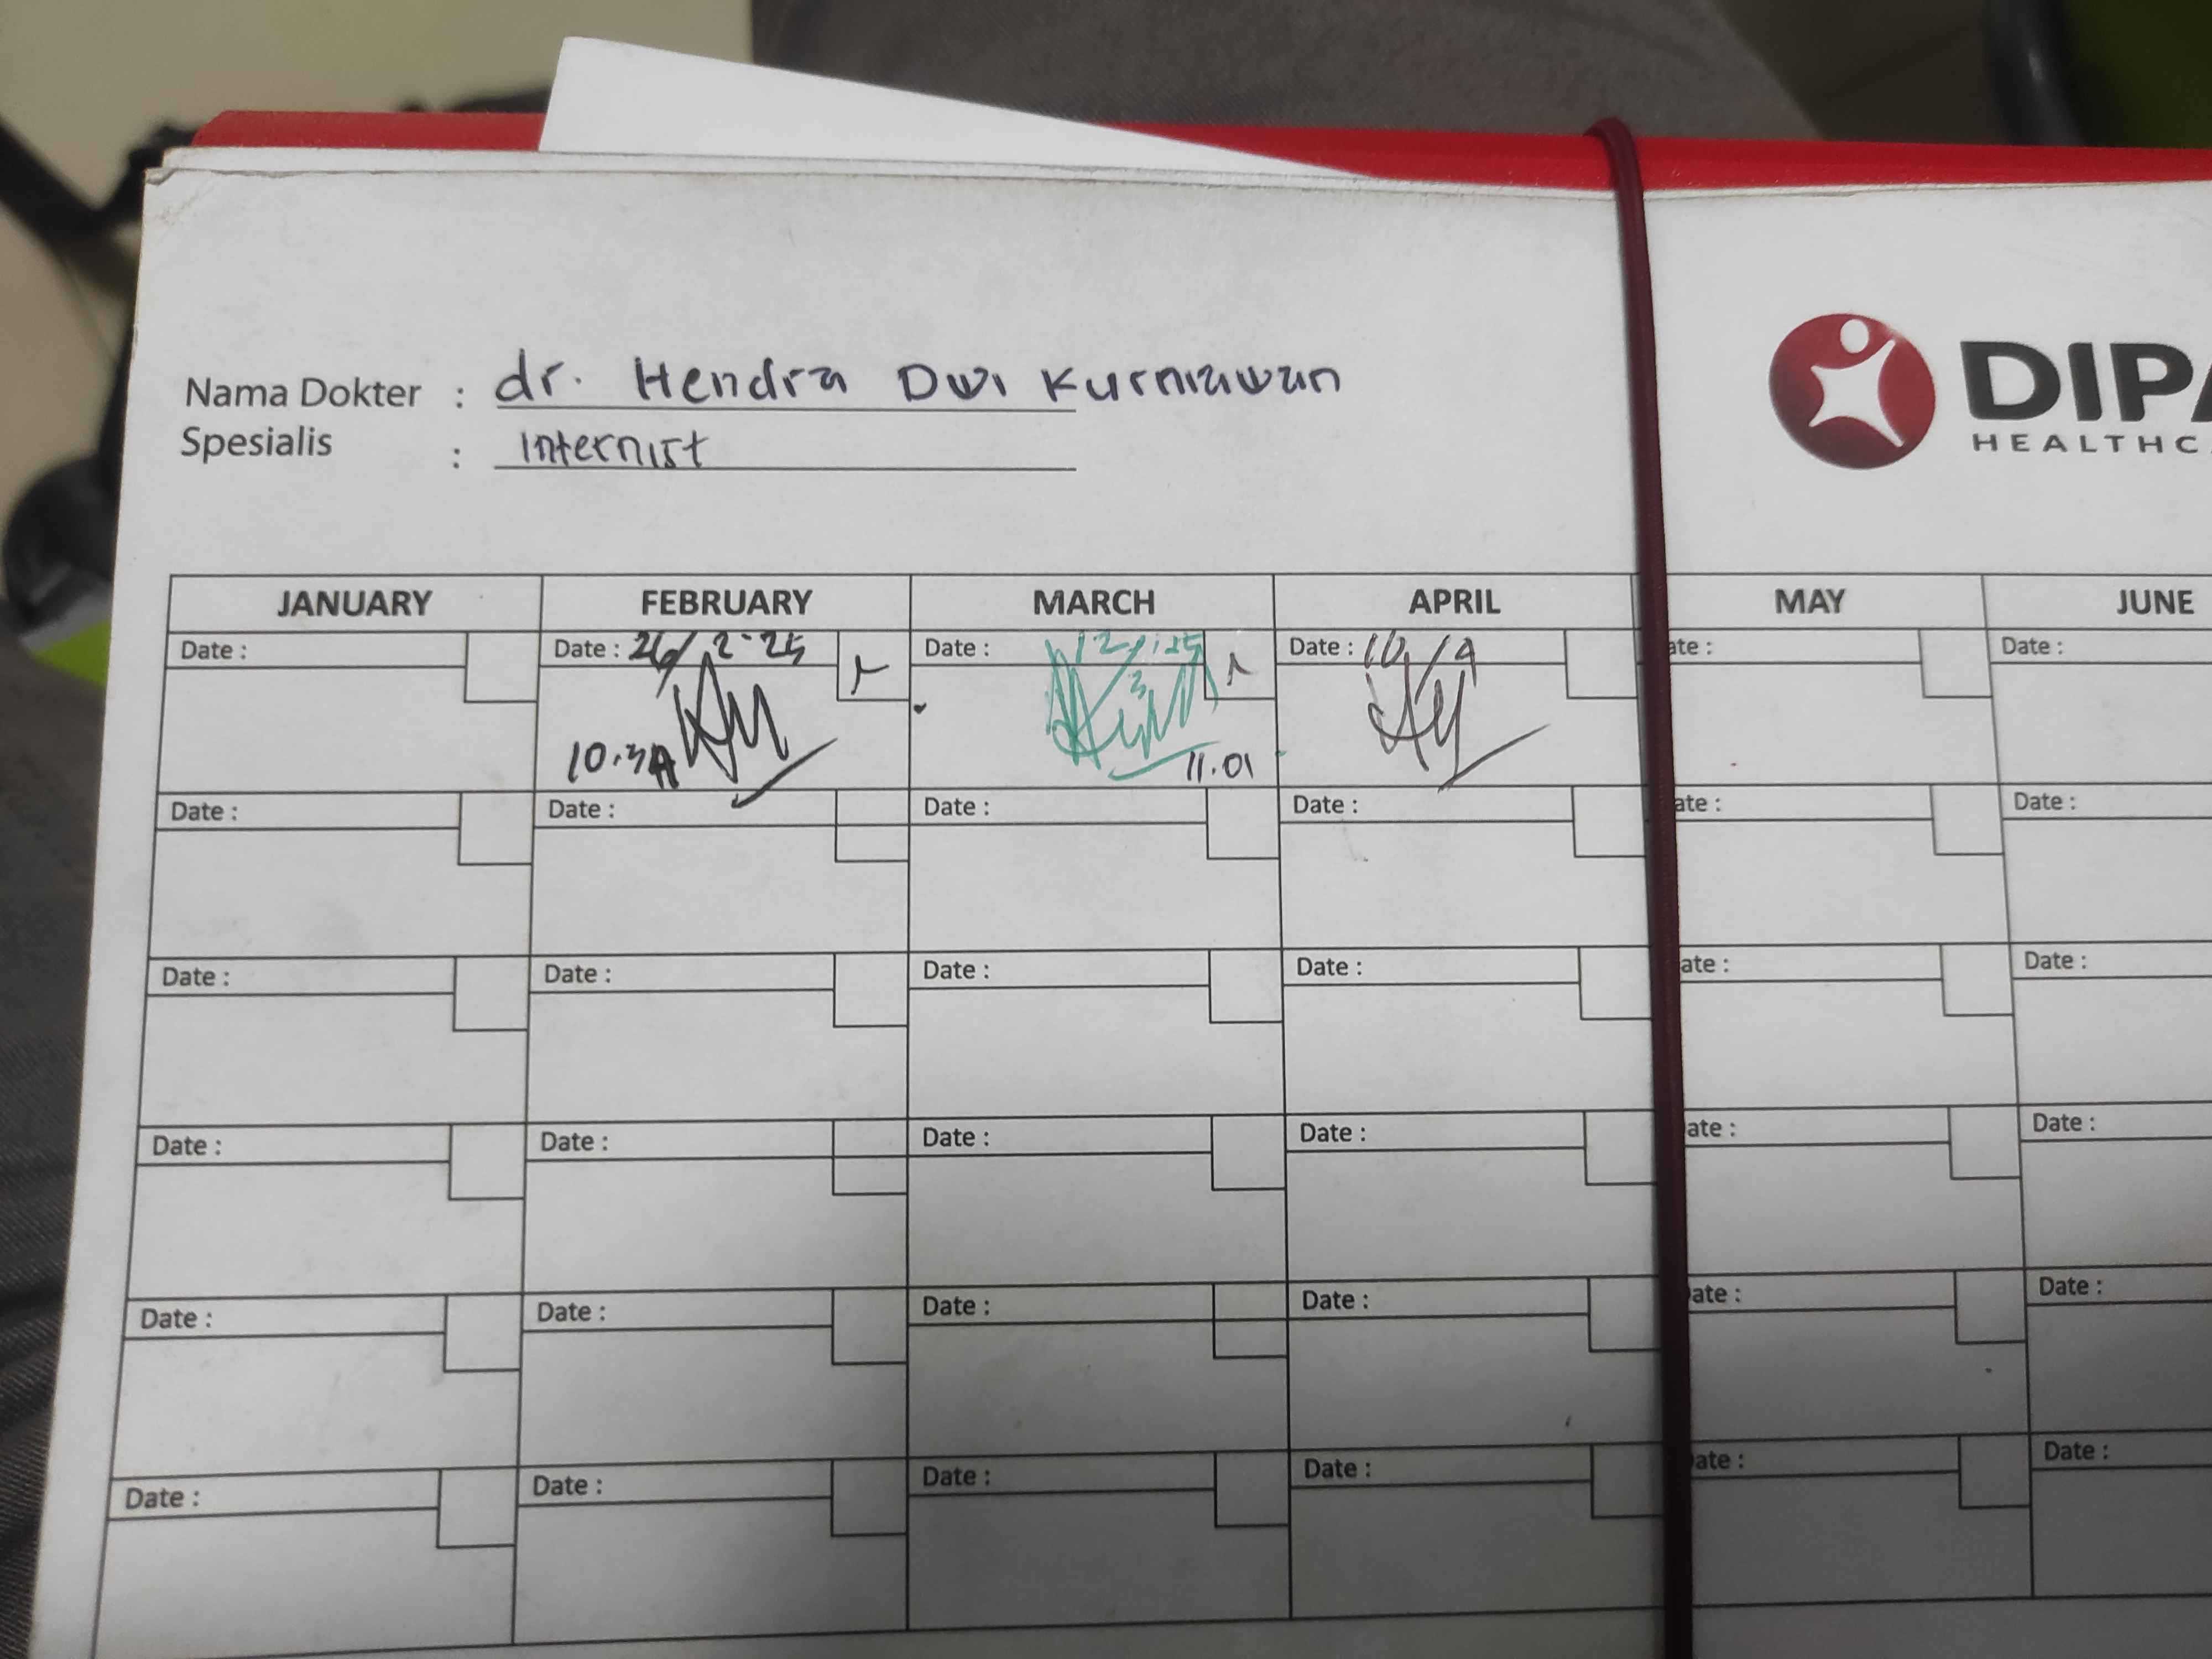 Nama Dokter : dr. Hendra Dwi Kurniawan
Spesialis : Internist
DIPA
HEALTHC
JANUARY FEBRUARY MARCH APRIL MAY JUNE
Date : Date : 26/2-25 Date : 12/3-25 Date : 10/4 ate : Date :
11.01
Date : Date : Date : Date : ate : Date :
Date : Date : Date : Date : ate : Date :
Date : Date : Date : Date : ate : Date :
Date : Date : Date : Date : ate : Date :
Date : Date : Date : Date : ate : Date :